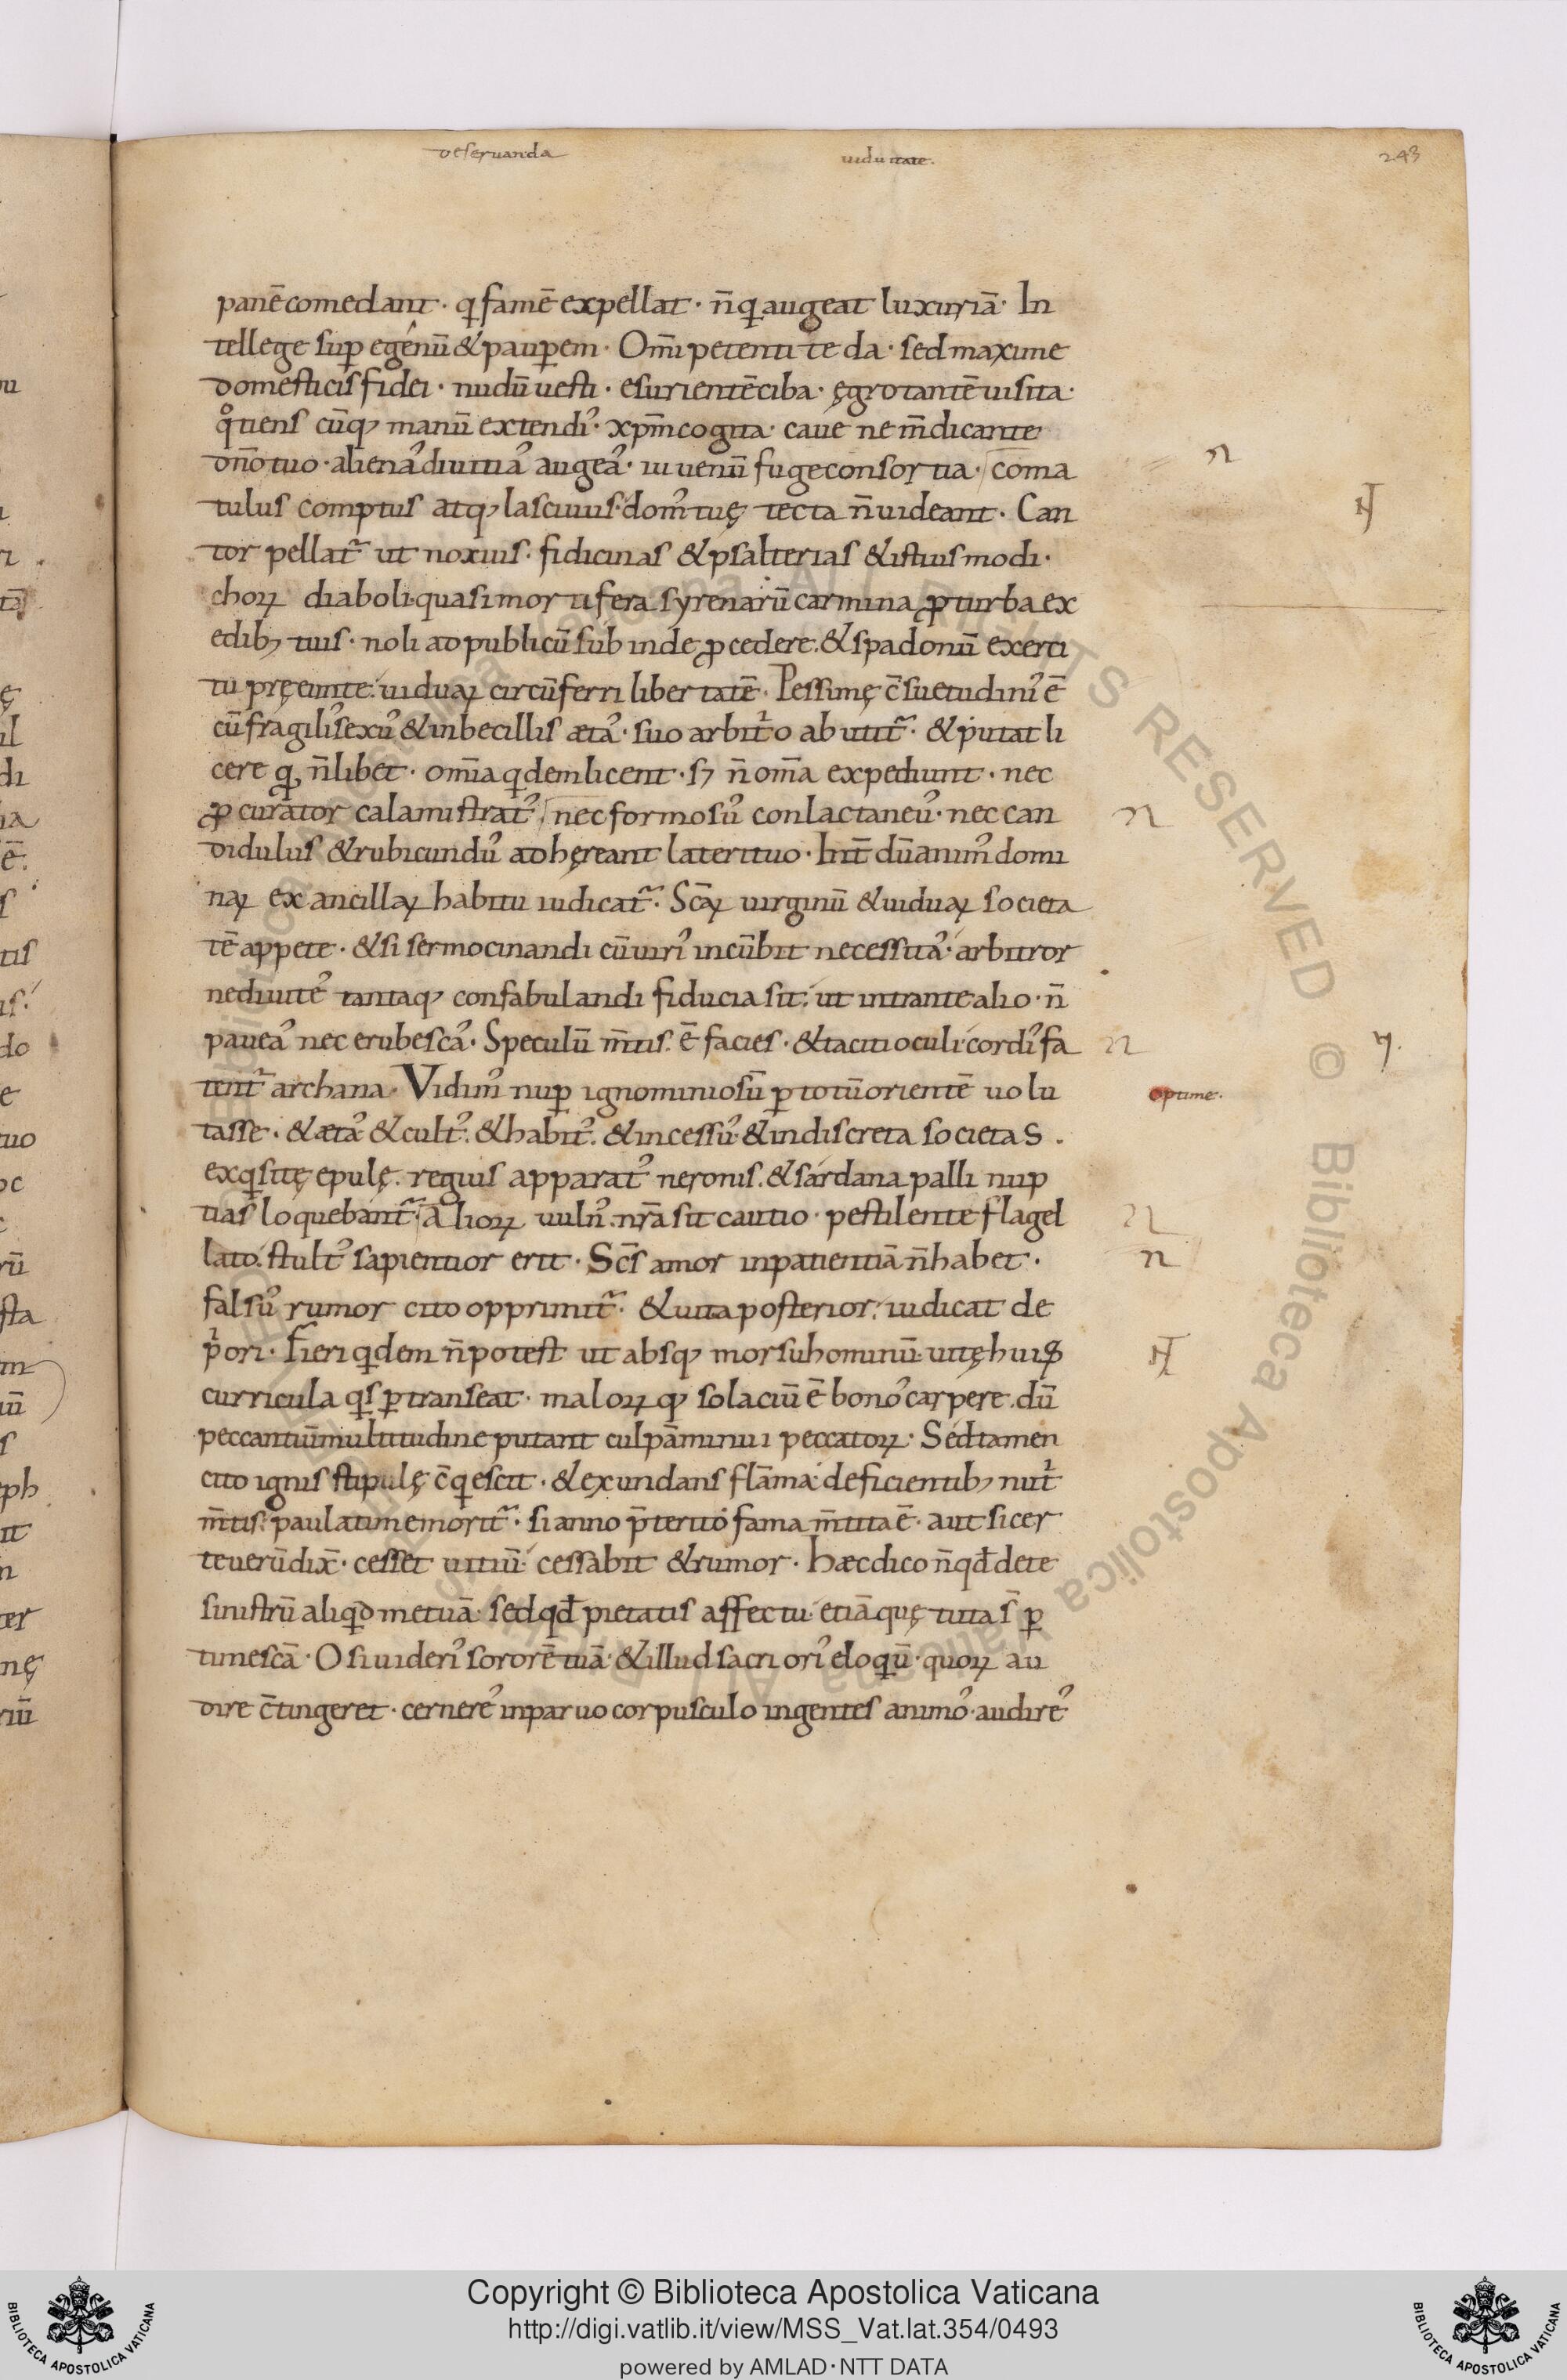 deseruanda uiduitate. 243
panē comedant · qi famē expellat · n̄ qi augeat luxuriā · In
tellege sup̱ egenū & paup̱em · Om̄i petenti te da · sed maxime
domesticis fidei · nudū uesti · esurientē ciba · ęgrotantē uisita ·
qͦtiens cūq; manū extendi᾽ · xp̄m cogita · caue ne m̄dicante
dn̄o tuo · aliena᾽ diuitia᾽ augea᾽ · iuuenū fuge consortia · coma
tulus comptus atq; lasciuus · dom᾽ tuę tecta n̄ uideant · Can
tor pellat᷑ ut noxius · fidicinas & psalterias & istiusmodi ·
choꝝ diaboli · quasi mortifera syrenarū carmina ꝓturba ex
edib; tuis · noli ad publicū subinde ꝓcedere · & spadonū exerci
tu pręeunte · uiduaꝝ circūferri libertatē · Pessimę c̄suetudini᾽ ē
cū fragili᾽ sexu᾽ & inbecillis ęta᾽ · suo arbitͥo abutit᷑ · & putat li
cere qđ n̄ libet · om̄ia qidem licent · s; n̄ om̄a expediunt · nec
ꝓcurator calamistrat᾽ nec formosu᾽ conlactaneu᾽ · nec can
didulus & rubicundu᾽ adhęreant lateri tuo · Int̄dū anim᾽ domi
naꝝ ex ancillaꝝ habitu iudicat᷑ · Sc̄aꝝ uirginū & uiduaꝝ societa
tē appete · & si sermocinandi cū uiri᾽ incūbit necessita᾽ · arbitror
ne diuite᾽ tantaq; confabulandi fiducia sit · ut intrante alio · n̄
pauea᾽ nec erubesca᾽ · Speculū m̄tis · ē facies · & taciti oculi cordi᾽ fa
tent᷑ archana · Vidim᾽ nup̱ ignominiosū p̱ totū orientē uolu
optime ·
tasse · & æta᾽ & cult᾽ · & habit᾽ · & incessu᾽ & indiscreta societas ·
exqisitę epulę · regius apparat᾽ neronis · & sardanapalli nup
tias loquebant᷑ · alioꝝ uuln᾽ · nr̄a sit cautio · pestilente flagel
lato · stult᾽ sapientior erit · Sc̄s amor inpatientiā n̄ habet ·
falsu᾽ rumor cito opprimit᷑ · & uita posterior · iudicat de
pͥori · Fieri qidem n̄ potest ut absq; morsu hominū · uitę hui᾽
curricula qis p̱transeat · maloꝝ q; solaciū ē bono᾽ carpere · dū
peccantiū multitudine putant culpā minui peccatoꝝ · Sed tamen
cito ignis stipulę c̄qiescit · & exundans flāma deficientib; nutͥ
m̄tis · paulatim emorit᷑ · si anno p̄terito fama m̄tita ē · aut si cer
te uerū dix̄ · cesset uitiū cessabit & rumor · hæc dico n̄ qđ de te
sinistrū aliqid metuā · sed qđ pietatis affectu · etiā quę tuta s̄ p̱
timescā · O si uideri᾽ sororē tuā · & illud sacri ori᾽ eloqiū · quoꝝ au
dire c̄tingeret · cernere᾽ in paruo corpusculo ingentes animo᾽ · audire᾽
Copyright © Biblioteca Apostolica Vaticana
http://digi.vatlib.it/view/MSS_Vat.lat.354/0493
powered by AMLAD·NTT DATA
BIBLIOTECA APOSTOLICA VATICANA
BIBLIOTECA APOSTOLICA VATICANA